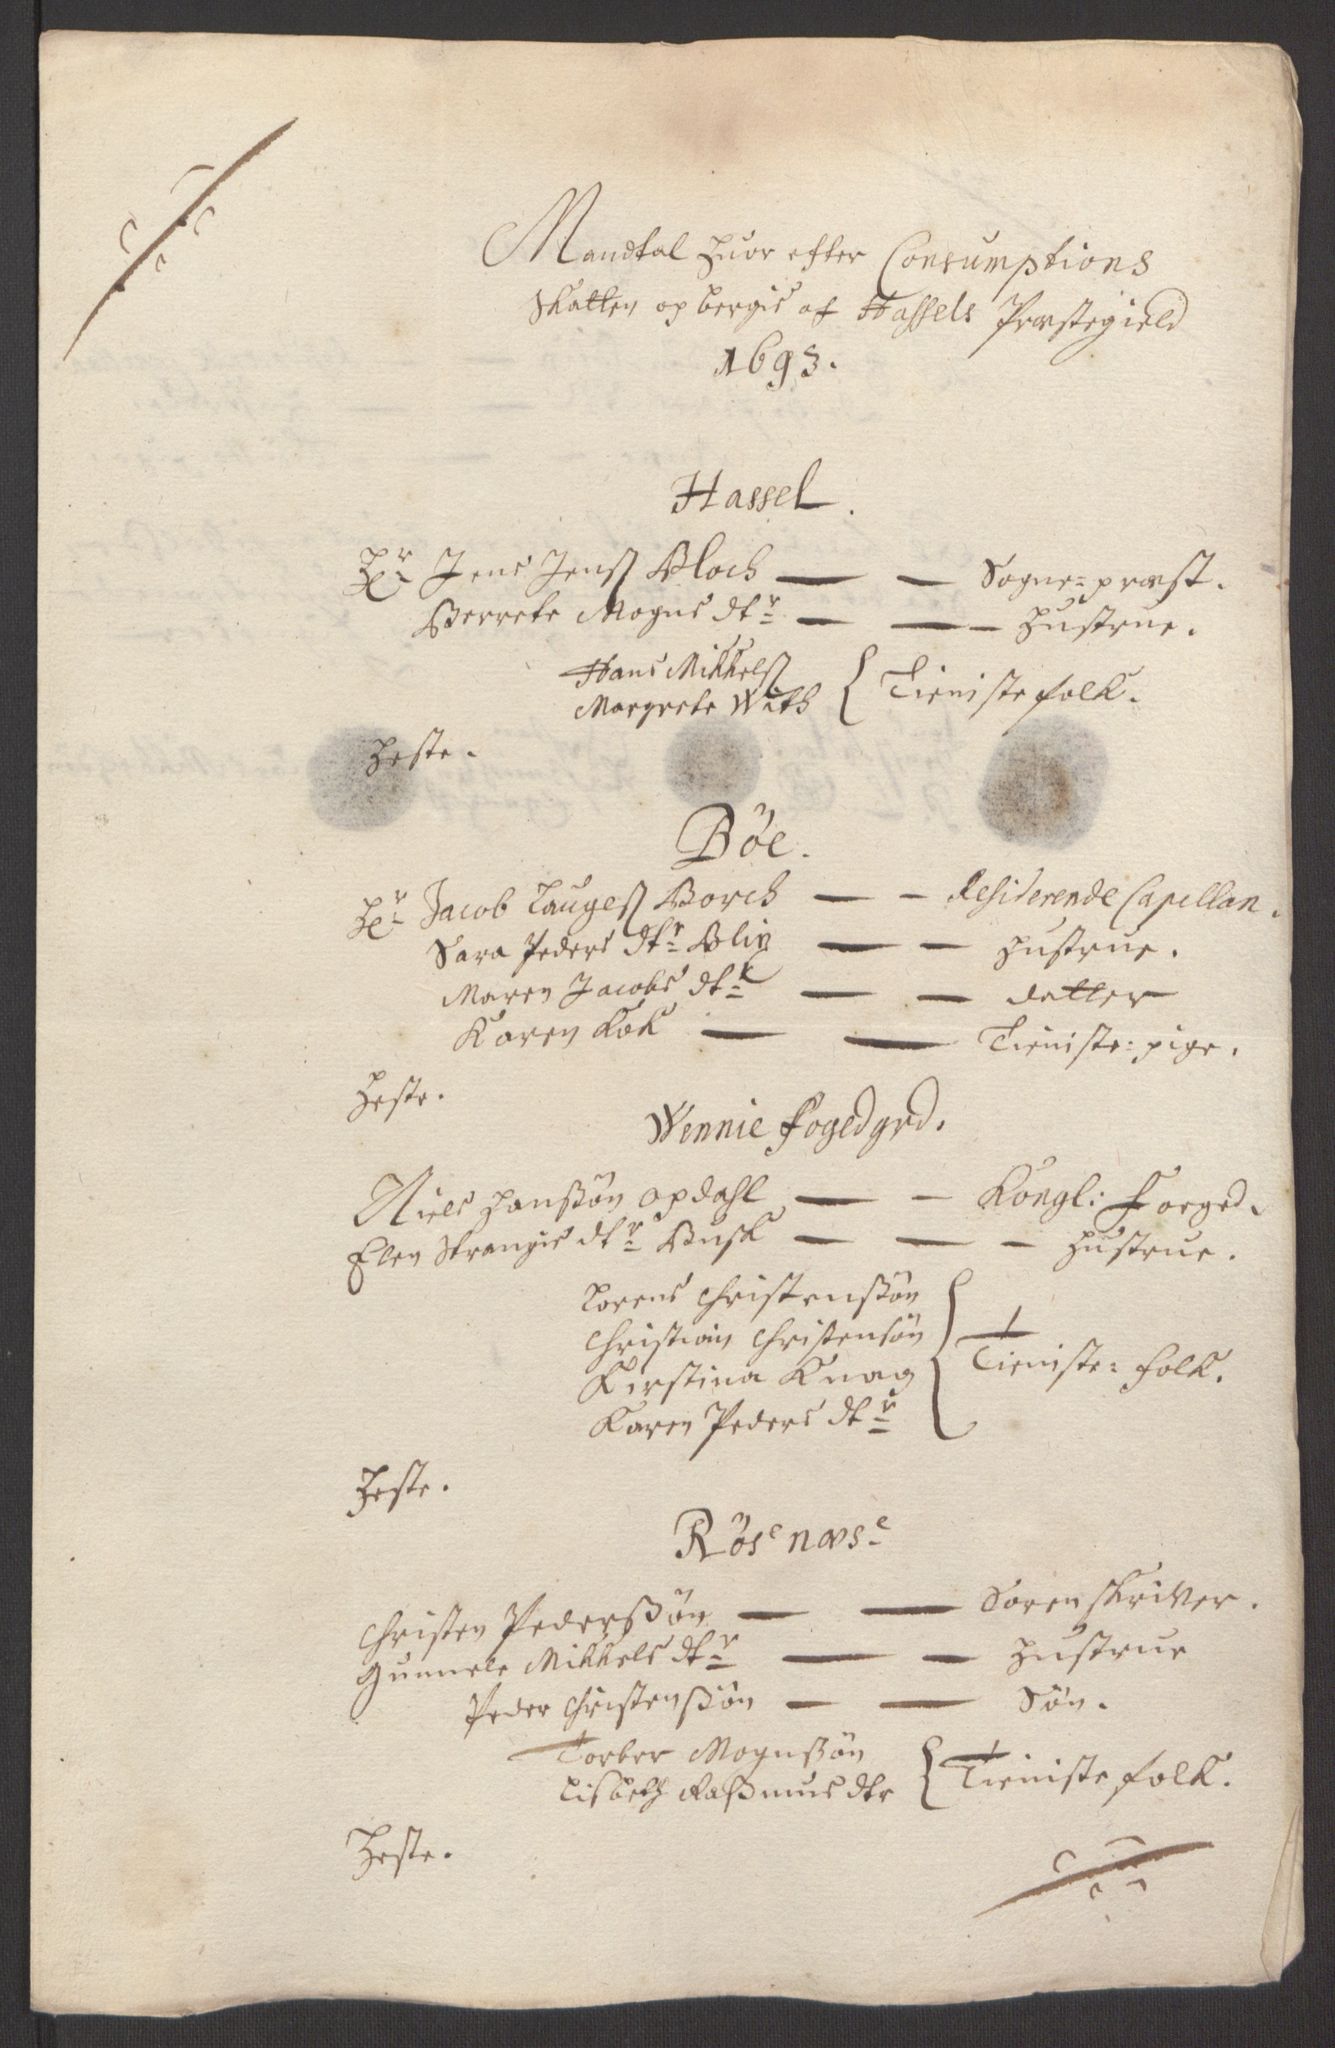 Mandtal huor efter Consumptions
Skatten opbergis af Hassels Præstegield
1693.
Hassel.
Hr Jens Jenss Bloch — — Sogne=præst.
Berrete Mogns dtr — — — Hustrue.
Hans Mikkelss
Margrete With { Tieniste folk.
Heste.
Böe.
Hr Jacob Laugess Borch — — Residerende Capellan.
Sara Peders dtr Blix — — Hustrue.
Maren Jacobs dtr — — datter
Karen Kok — — Tieniste=pige.
Heste.
Wennie fogedgrd.
Niels Hanssøn Opdahl — — Köngl: Foeged.
Elen Strangis dtr Busk — — — Hustrue.
Lorens Christenssøn
Christian Christensøn
Kirstina Knag
Karen Peders dtr } Tieniste=folk.
Heste.
Röse næse
Christen Pederssøn — — Sorenskriver.
Gunnele Mikkels dtr — — Hustrue
Peder Christenssøn — — Søn.
Torber Mognssøn
Lisbeth Rassmus dtr { Tieniste folk.
Heste.